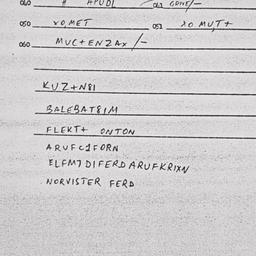 040 # APUDI 041 GONE/-
050 XO, MET 051 XO MUT+
060 MUC+ENZAX/-
KUZ+N81
BALEBAT81M
FLEKT+ ONTON
ARUFC1FORN
ELFM7 DIFERD ARUFKRIXN
NORVISTER FERD